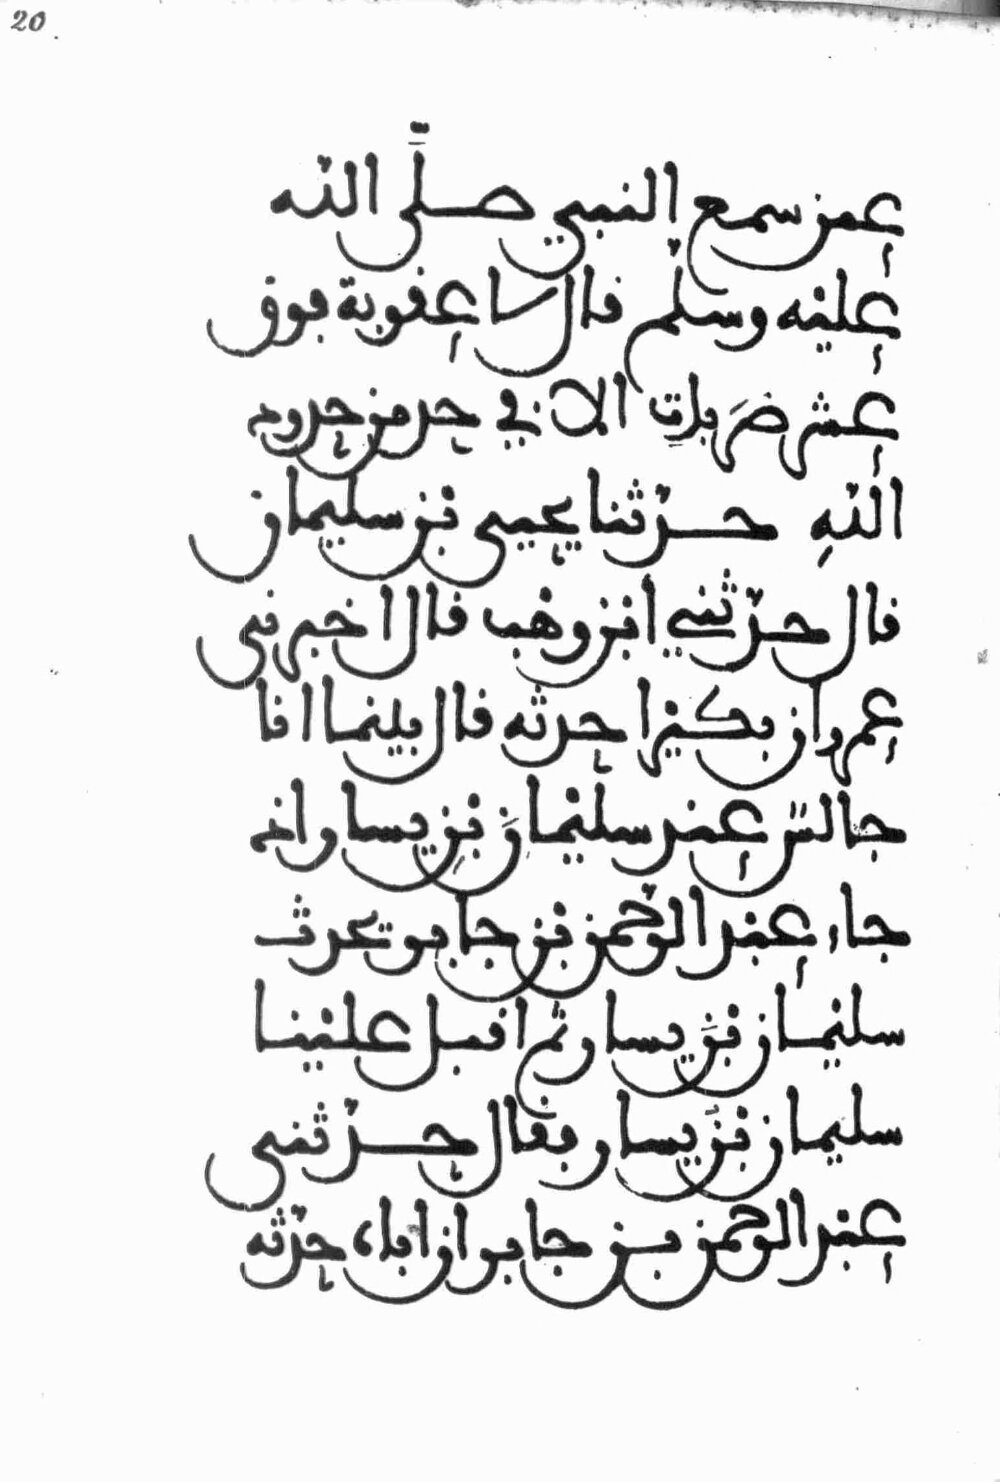 20
عمن سمع النبي صلى الله
عليه وسلم قال لا عقوبة فوق
عشر ضربات الا في حد من حدود
الله حدثنا يحيى بن سليمان
قال حدثني ابن وهب قال اخبرني
عمرو ان بكيرا حدثه قال بينما انا
جالس عند سليمان بن يسار اذ
جاء عبد الرحمن بن جابر يحدث
سليمان بن يسار ثم اقبل علينا
سليمان بن يسار فقال حدثني
عبد الرحمن بن جابر ان اباه حدثه